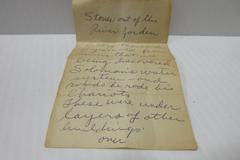 Stones out of the
River Jordan
being discovered
Solomon's water
system and
roads he rode his
Chariots
These were under
layers of other
buildings
over